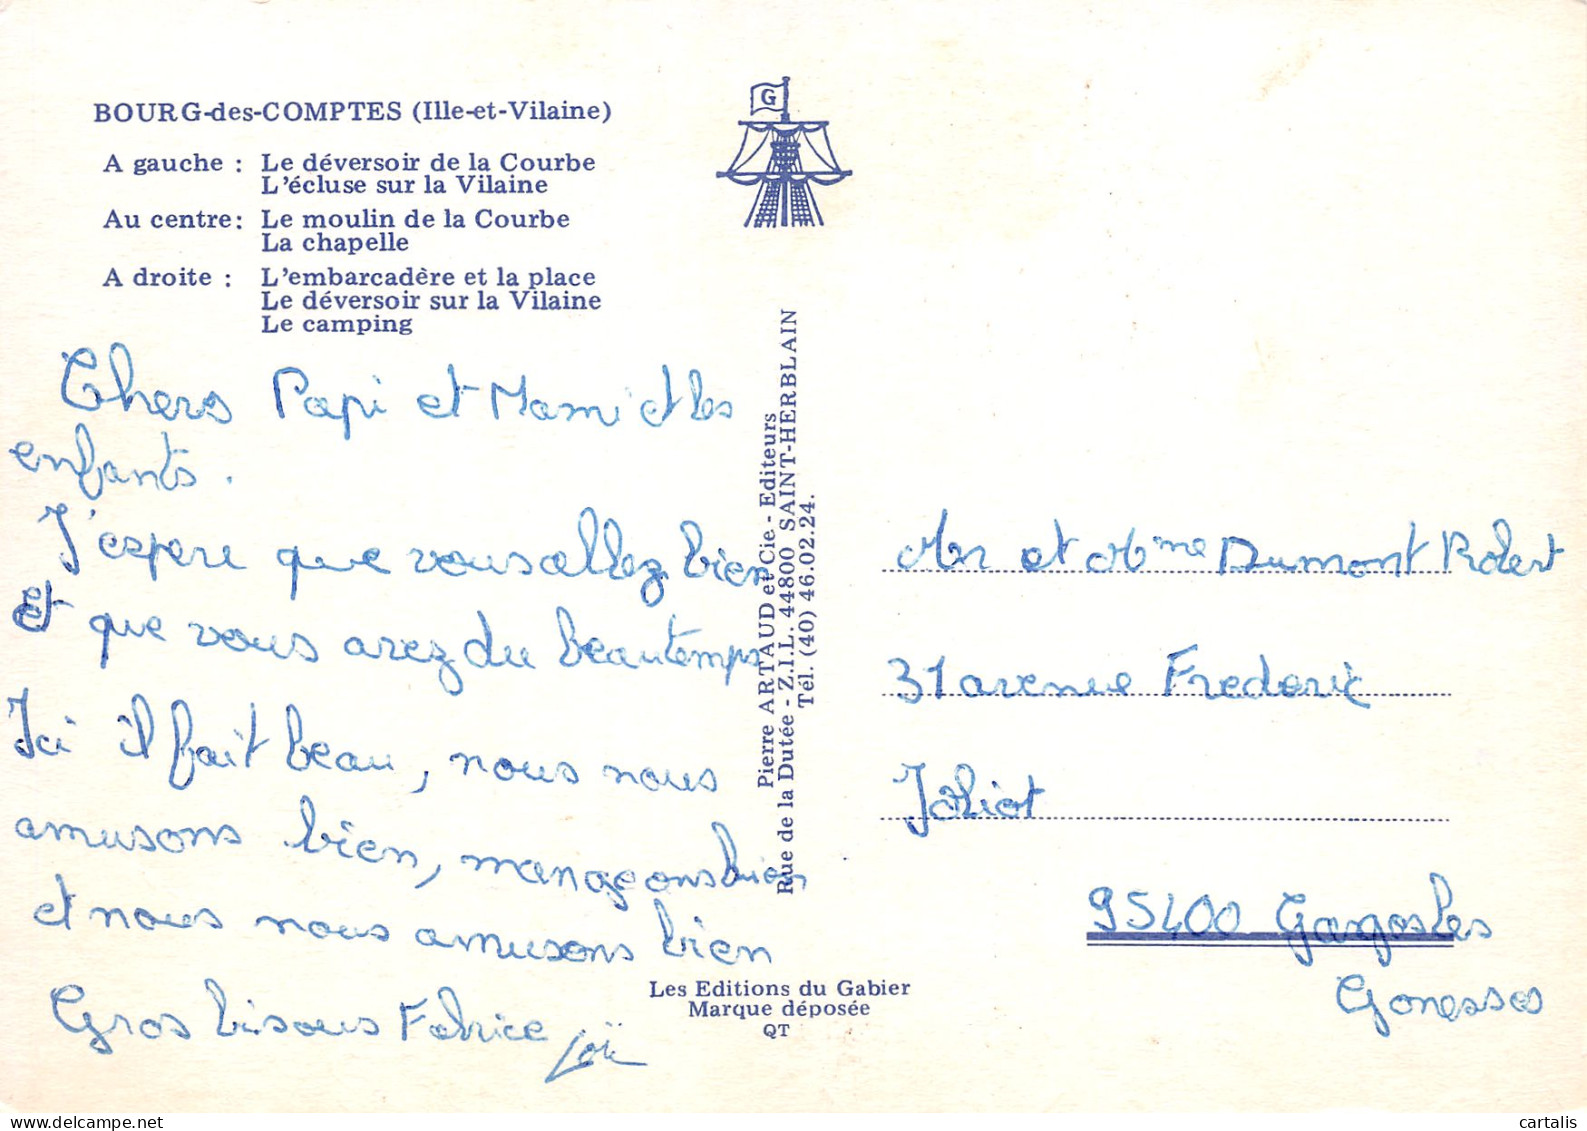 BOURG-des-COMPTES (Ille-et-Vilaine)
A gauche : Le déversoir de la Courbe
L'écluse sur la Vilaine
Au centre : Le moulin de la Courbe
La chapelle
A droite : L'embarcadère et la place
Le déversoir sur la Vilaine
Le camping
Chers Papi et Mami et les
enfants.
J'espere que vous allez bien
Et que vous avez du beau temps
Ici il fait beau, nous nous
amusons bien, mangeons bien
et nous nous amusons bien
Gros bisous Fabrice Loïc
G
Pierre ARTAUD et Cie - Editeurs
Rue de la Dutée - Z.I.L. 44800 SAINT-HERBLAIN
Tél. (40) 46.02.24.
Les Editions du Gabier
Marque déposée
QT
Mr et Mme Dumont Robert
31 avenue Frederic
Joliot
95400 Gargosles
Gonesses
cartalis